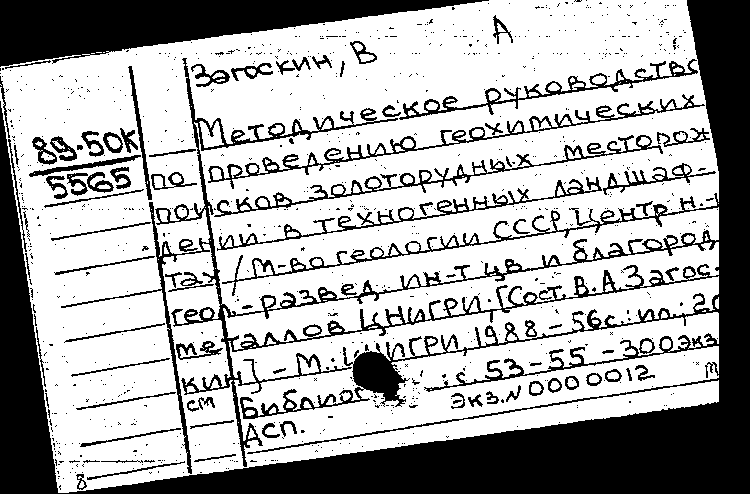 Загоскин, В А
89-50К
5565
Методическое руководство
по проведению геохимических
поисков золоторудных месторож
дений в техногенных ландшаф-
тах / М-во геологии СССР, Центр. н.-
геол.-развед. ин-т цв. и благород
металлов ЦНИГРИ; [Сост. В.А. Загос-
кин] - М.: ЦНИГРИ, 1988. - 56с.: ил.; 20
см
Библиог : с. 53-55 - 300 экз
Экз. N 0000012
ДСП.
8